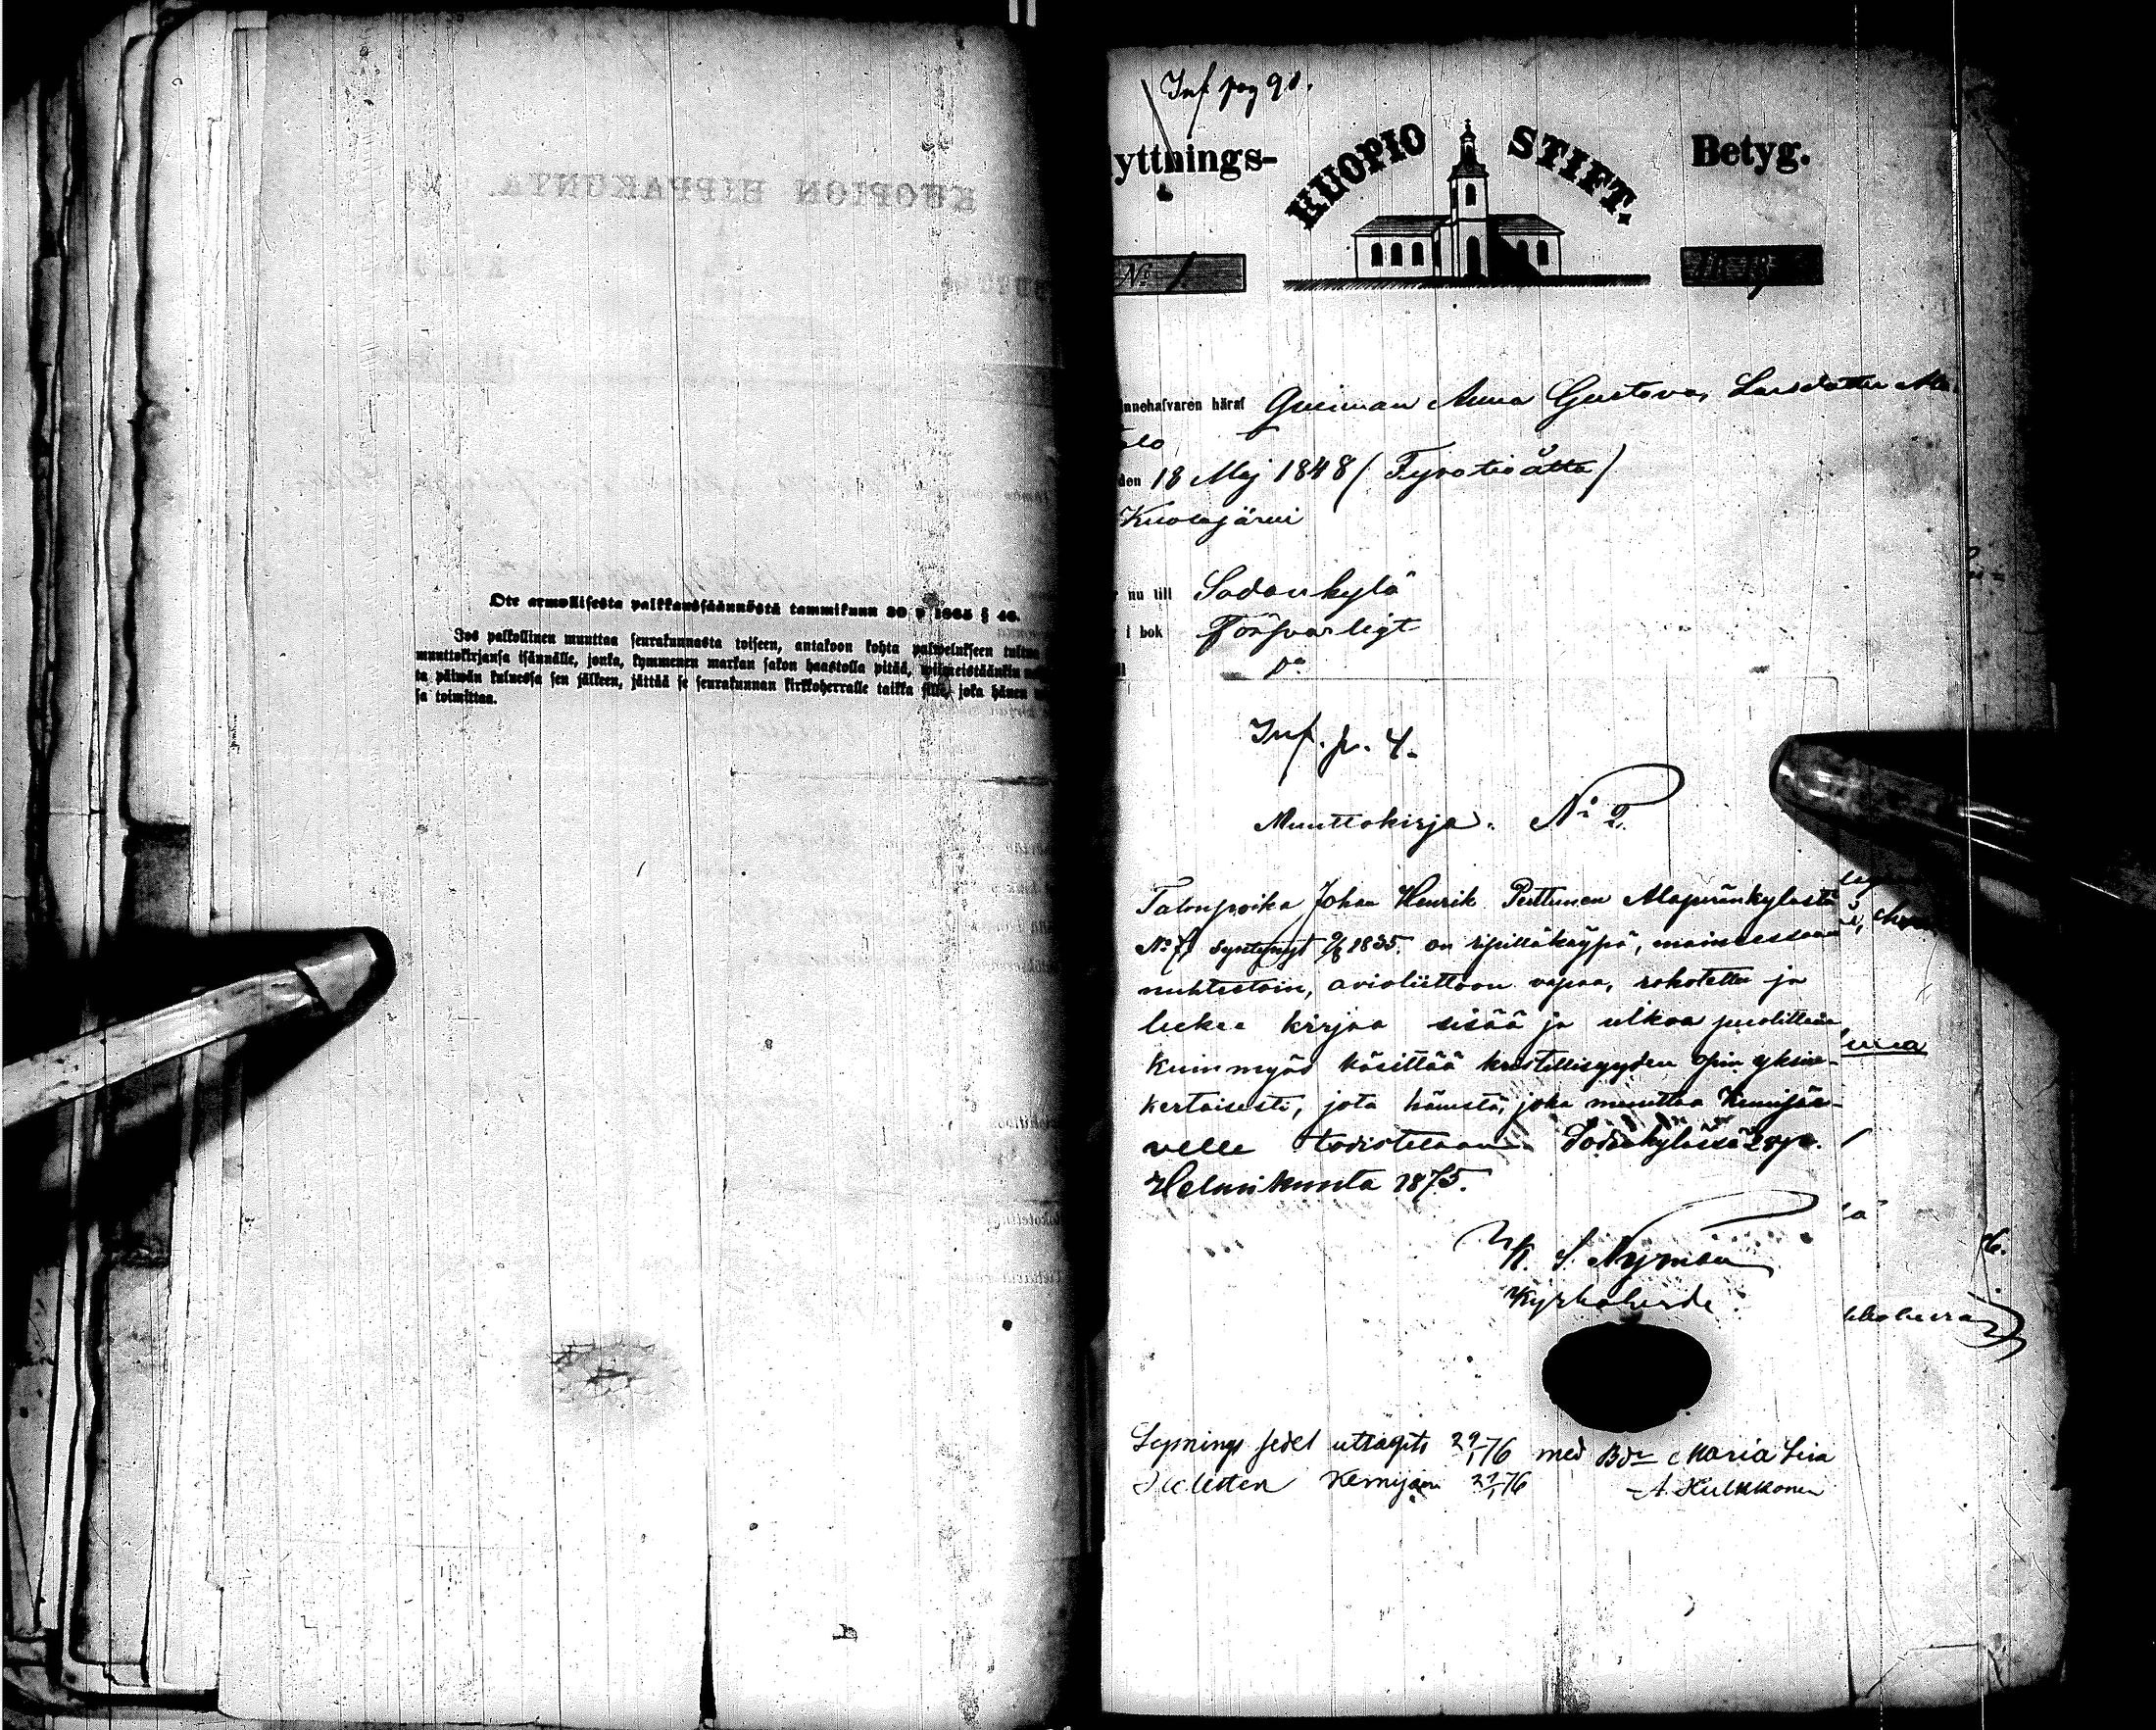 Ote armollisesta palkkaussäännöstä tammikunn 30 p 1865 § 46.
Jos palkollinen muuttaa seurakunnasta toiseen, antakoon kohta palwelukseen tultua
muuttokirjansa isännälle, jonka, kymmenen markan sakon haastolla pitää, wiimeistäänkin
ta päiwän kuluessa sen jälkeen, jättää se seurakunnan kirkkoherralle taikka sille, joka hänen
sa toimittaa.
Inf pag 91.
yttnings-
KUOPIO STIFT.
Betyg.
No 1.
innehafvaren häraf Anna Gustava, Larsdotter
den 18 Maj 1848 (Fyratioåtta)
Kuolajärvi
nu till Sodankylä
i bok Försvarligt
Do
Inf. p. 4.
Muuttokirja. No 2.
Talonpoika Johan Henrik Perttunen Alaperänkylästä
No 7 syntynyt 1835. on ripilläkäypä, maineessaan
nuhtetoin, avioliittoon vapaa, rokotettu ja
lukee kirjaa sisää ja ulkoa puolittain
kuin myös käsittää kristillisyyden opin yksin-
kertaisesti, jota hänestä, joka muuttaa Kemijär-
velle todistetaan. Sodankylässä
Helmikuuta 1875.
K. S. Nyman
Kyrkoherde.
Lysnings sedel uttagits 29/1 76 med Bdr Maria Lisa
Kemijärvi 29/1 76 A. Hulkkonen